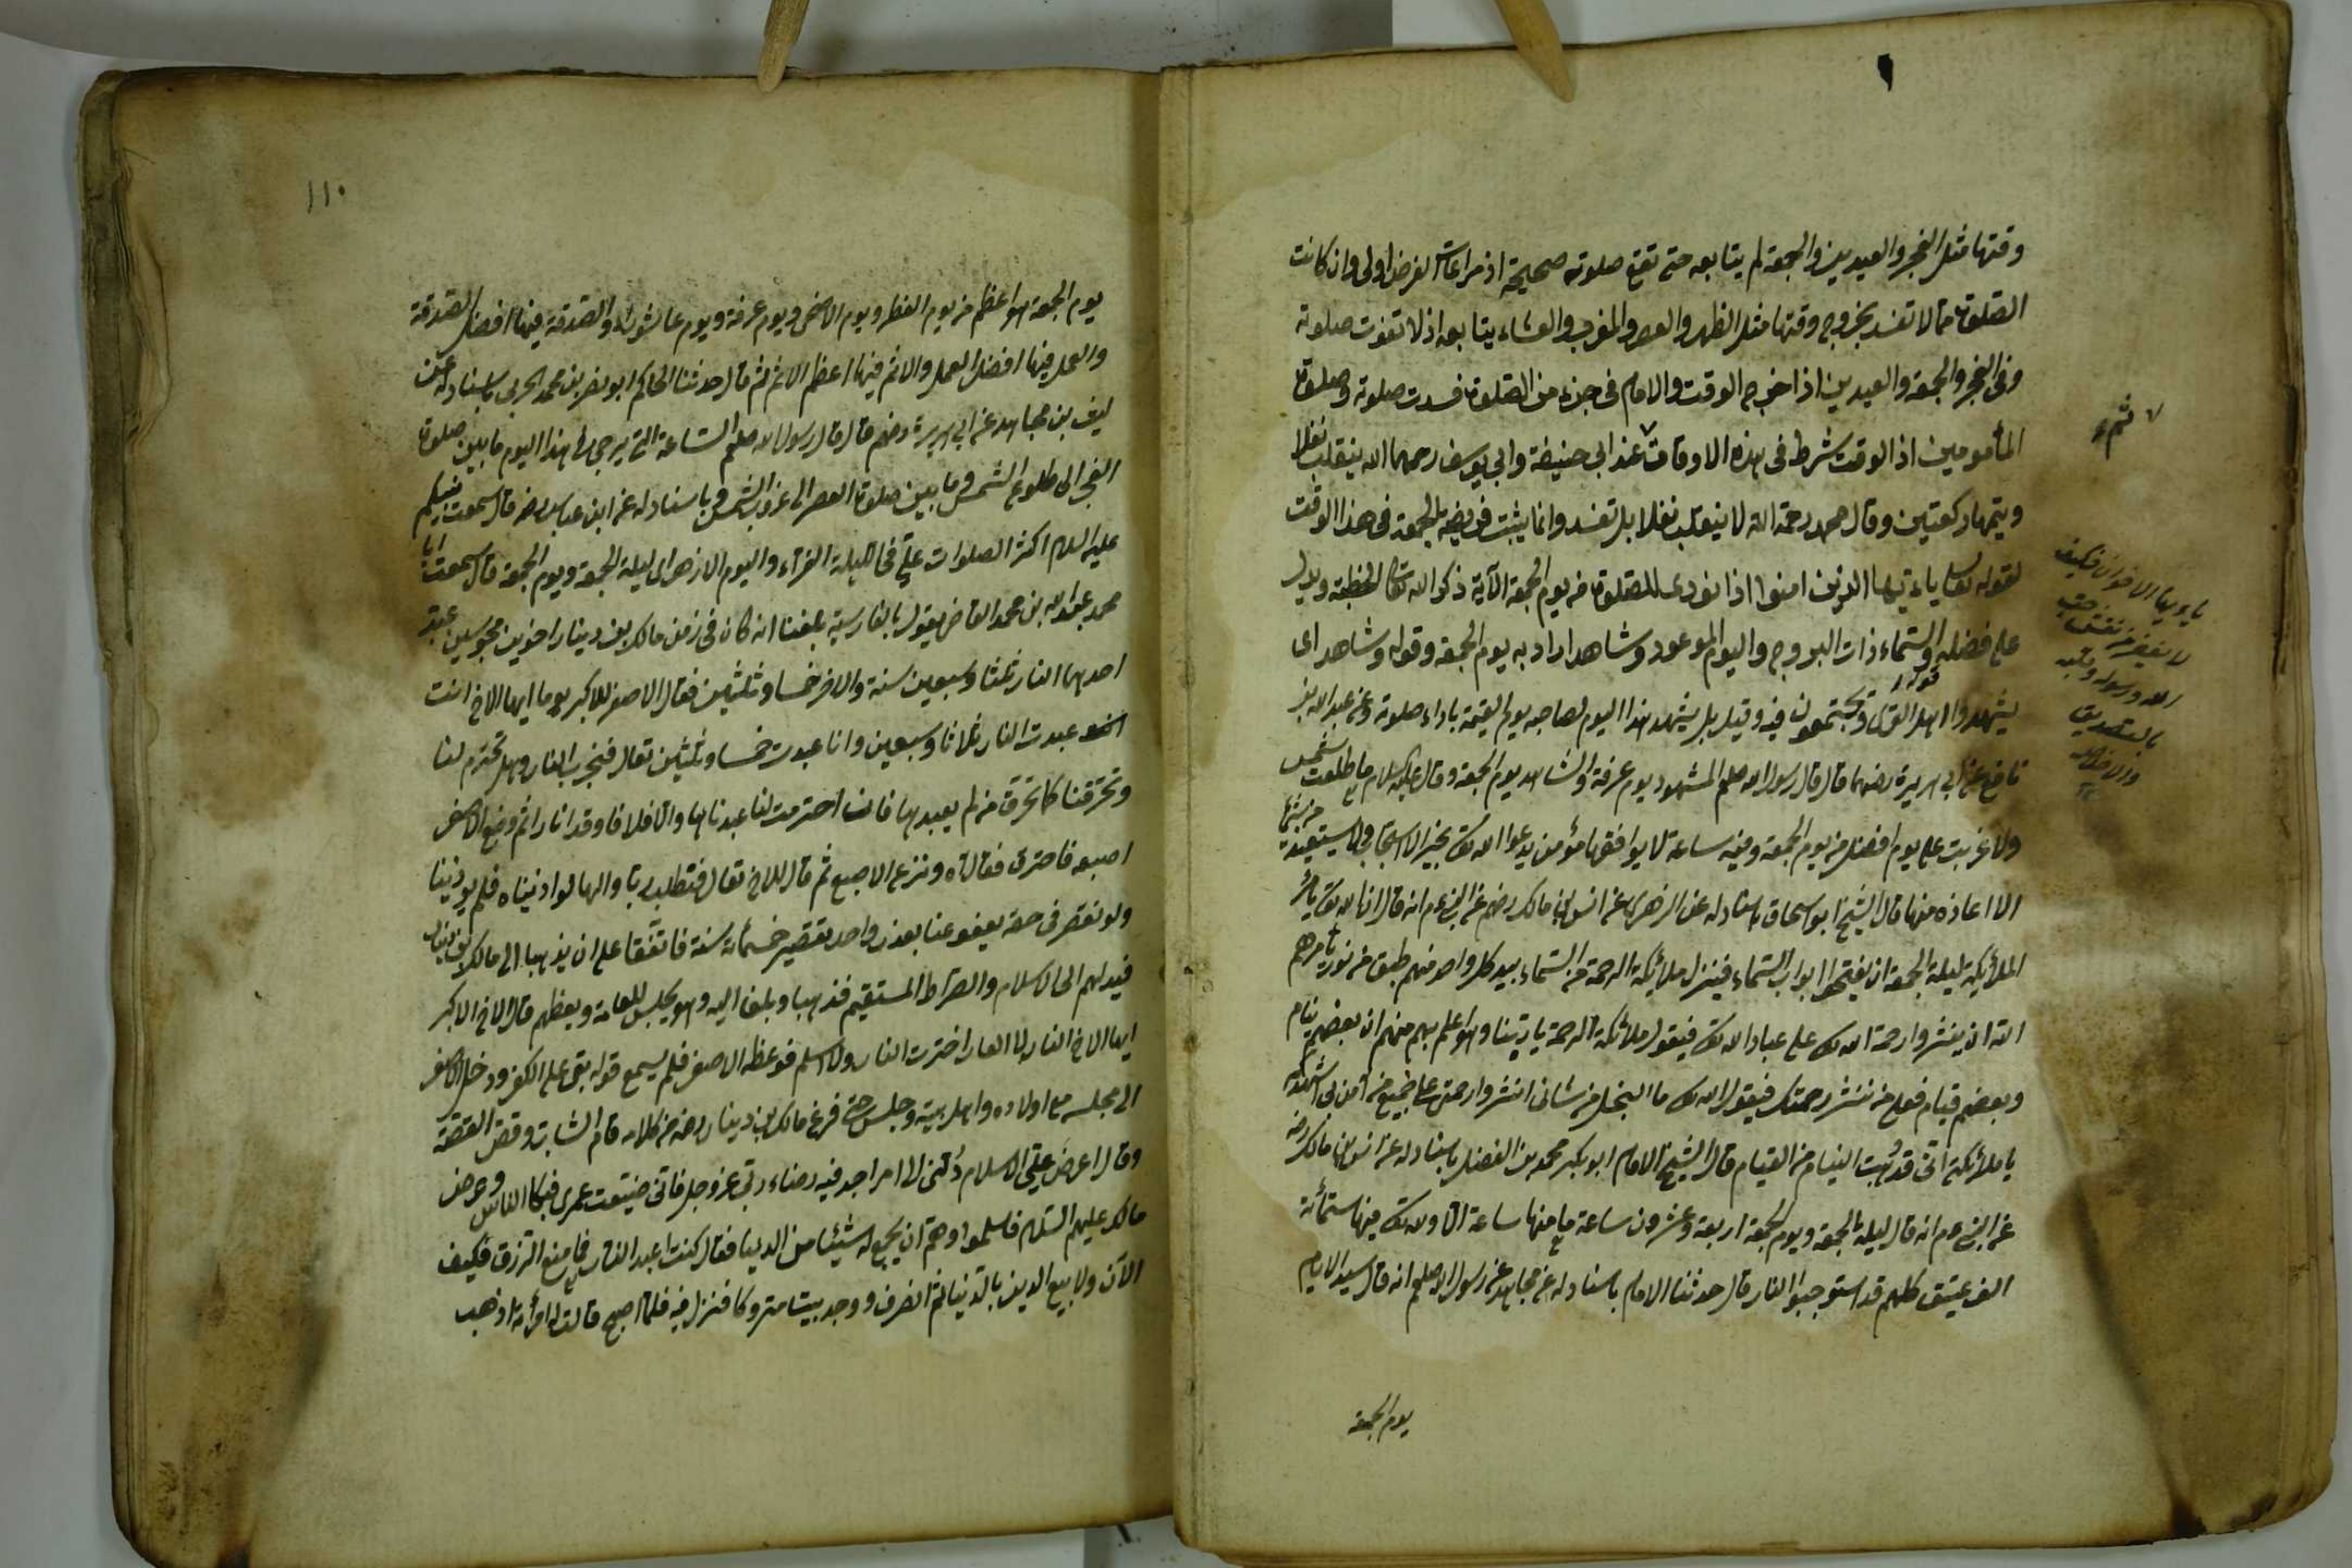 وقتها مثل الفجر والعيدين والجمعة لم يتابعه حتى تقع صلوته صحيحة اذ مراعاة الفرض اولى وان كانت
الصلوة مما لا تفسد بخروج وقتها مثل الظهر والعصر والمغرب والعشاء يتابعه اذ لا تفوت صلوته
وفى الفجر والجمعة والعيدين اذا خرج الوقت والامام فى جزء من الصلوة فسدت صلوته وصلوة
المأمومين اذ الوقت شرط فى هذه الاوقات عند ابى حنيفة وابى يوسف رحمهما الله ينقلب نفلا
ويتمها ركعتين وقال محمد رحمه الله لا ينقلب نفلا بل تفسد وانما يثبت فرضية الجمعة فى هذا الوقت
لقوله تعالى ياءيها الذين امنوا اذا نودى للصلوة من يوم الجمعة الآية ذكر الله تعا الخطبة ويدل
على فضله والسماء ذات البروج واليوم الموعود وشاهد اراد به يوم الجمعة وقوله وشاهد اى
يشهدوا اهل القرى ويجتمعون فيه وقيل بل يشهد هذا اليوم لصاحبه يوم القيمة باداء صلوته وعن عبد الله بن
نافع عن ابى هريرة رضهما قال قال رسول الله صلعم المشهود يوم عرفة والشاهد يوم الجمعة وقال عليه السلام ما طلعت شمس
ولا غربت على يوم افضل من يوم الجمعة وفيه ساعة لا يوافقها مؤمن يدعوا الله تعا بخير الا استجاب ولا يستعيذ من شئ
الا اعاذه منها قال الشيخ ابو اسحاق باسناد له عن الزهرى عن انس بن مالك رضهم عن النبى عم انه قال ان الله تعا يأمر
الملائكة ليلة الجمعة ان يفتحوا ابواب السماء فينزل ملائكة الرحمة من السماء بيد كل واحد منهم طبق من نور يأمرهم
الله ان ينشروا رحمة الله تعا على عباد الله تعا فيقول ملائكة الرحمة يا ربنا وهو اعلم بهم منهم ان بعضهم نيام
وبعضهم قيام فعلى من ننشر رحمتك فيقول الله تعا ما البخل من شانى انشروا رحمتى على جميع من آمن بى اشهدكم
يا ملائكتى انى قد وهبت النيام من القيام قال الشيخ الامام ابو بكر محمد بن الفضل باسناد له عن انس بن مالك رضه
عن النبى عم انه قال ليلة الجمعة ويوم الجمعة اربعة وعشرون ساعة ما منها ساعة الا ولله تعا فيها ستمائة
الف عتيق كلهم قد استوجبوا النار قال حدثنا الامام باسناد له عن مجاهد عن رسول الله صلعم انه قال سيد الايام
يوم الجمعة
ثم
ياءيها الاخوان فكيف
الله ورسوله
بالتصديق
يوم الجمعة هو اعظم من يوم الفطر ويوم الاضحى ويوم عرفة ويوم عاشوراء والصدقة فيها افضل الصدقة
والعمل فيها افضل العمل والاثم فيها اعظم الاثم ثم قال حدثنا الحاكم ابو نصر بن محمد الحربى باسناد له عن
ليف بن مجاهد عن ابى هريرة رضهم قال قال رسول الله صلعم الساعة التى يرجى لها هذا اليوم ما بين صلوة
الفجر الى طلوع الشمس وما بين صلوة العصر الى غروب الشمس وباسناد له عن ابن عباس رضه قال سمعت نبيكم
عليه السلام اكثروا الصلوات على فى الليلة الغراء واليوم الازهر اى ليلة الجمعة ويوم الجمعة قال سمعت ابا
محمد عبد الله بن محمد القاضى يقول بالفارسية بلغنا انه كان فى زمن مالك بن دينار اخوين مجوسيين عبد
احدهما النار ثلثا وسبعين سنة والاخر خمسا وثلثين فقال الاصغر للاكبر يوما ايها الاخ انت
عبدت النار ثلاثا وسبعين وانا عبدت خمسا وثلثين تعال فنجرب النار وهل تحترم لنا
وتحرقنا كما تحرق من لم يعبدها فان احترمت لنا عبدناها والا فلا فاوقدا نارا ثم وضع الاصغر
اصبعه فاحترق فقال آه ونزع الاصبع ثم قال للاخ تعال فنطلب ربا والها لو اذنبناه فلم يوذينا
ولو نقصر فى حقه يعفو عنا بعذر واحد تقصير خمسمائة سنة فاتفقا على ان يذهبا الى مالك بن دينار
فيدلهم الى الاسلام والصراط المستقيم فذهبا وبلغا اليه وهو يجلس للعامة ويعظهم قال الاخ الاكبر
ايها الاخ النار لا العار اخترت النار ولا اسلم فوعظه الاصغر فلم يسمع قوله بقى على الكفر ودخل الاصغر
الى مجلسه مع اولاده واهل بيته وجلس حتى فرغ مالك بن دينار رضه من كلامه قام الشاب وقص القصة
وقال اعرض على الاسلام دلنى الى امر اجد فيه رضاء ربى عز وجل فانى ضيعت عمرى فبكا الناس وعرض
مالك عليهم السلام فاسلموا وهم ان يجمع له شيئا من الدنيا فقال كنت اعبد النار فما منع الرزق فكيف
الآن ولا يبيع الدين بالدنيا ثم انصرف ووجد بيتا متروكا فنزل فيه فلما اصبح قالت له امرأته اذهب
١١٠